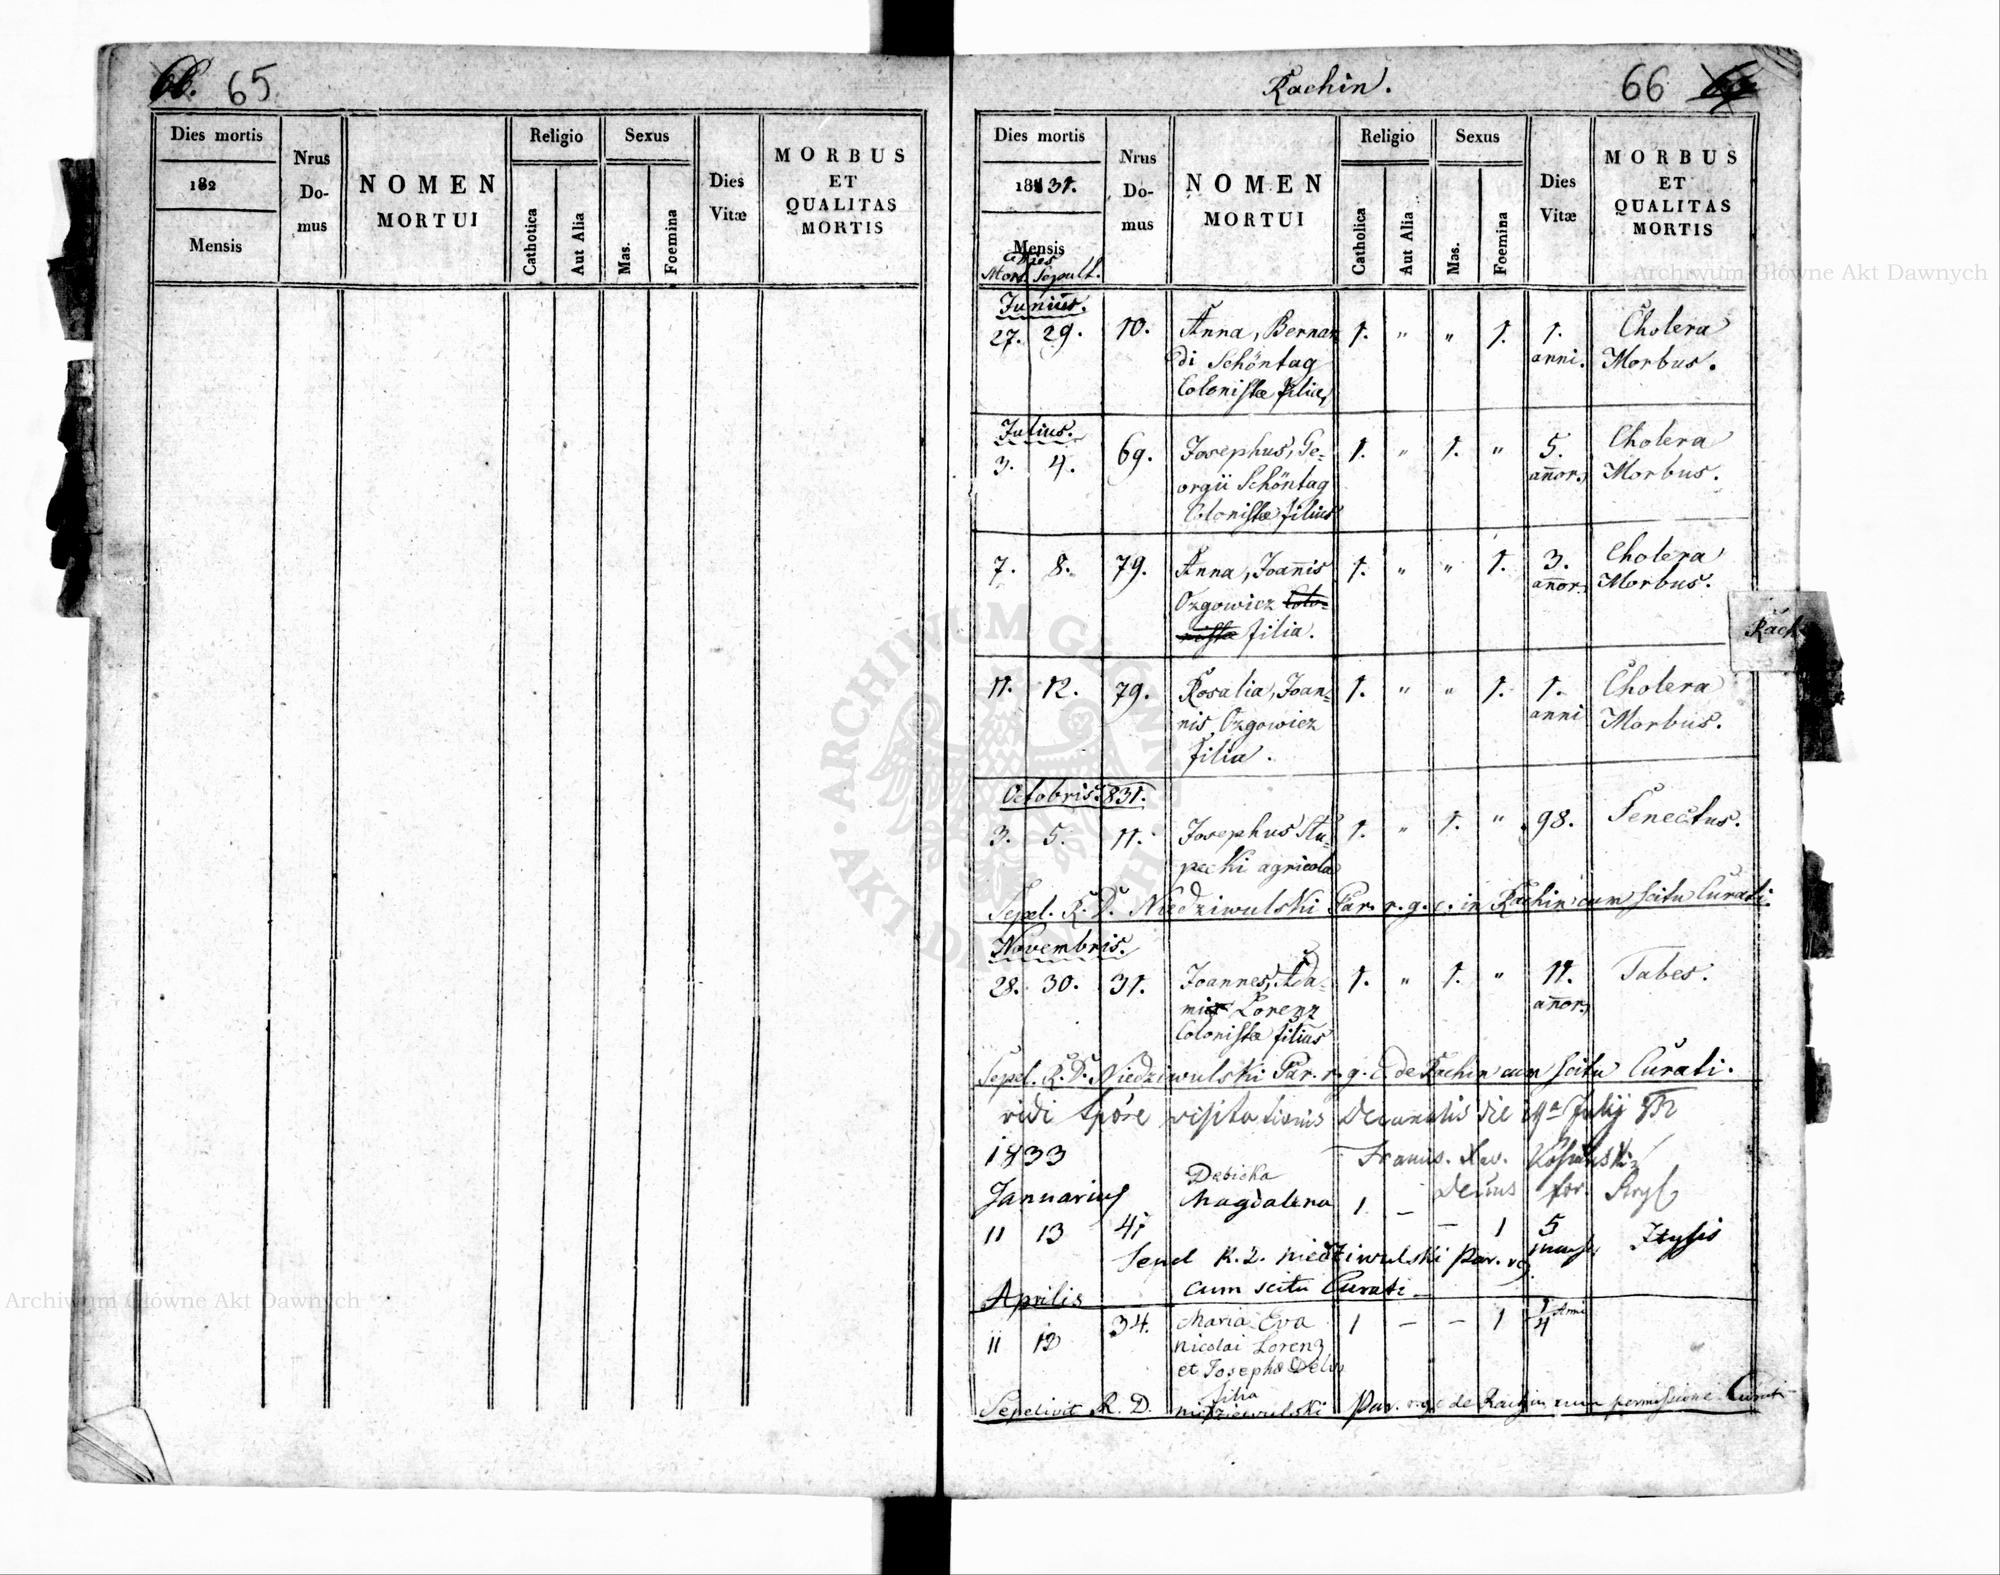 65
Dies mortis
182
Mensis
Nrus
Do-
mus
NOMEN
MORTUI
Religio
Cathotica
Aut Alia
Sexus
Mas.
Foemina
Dies
Vitæ
MORBUS
ET
QUALITAS
MORTIS
Rachin.
66
Dies mortis
1831.
Mensis
Dies
Mort. Sepult.
Nrus
Do-
mus
NOMEN
MORTUI
Religio
Catholica
Aut Alia
Sexus
Mas.
Foemina
Dies
Vitæ
MORBUS
ET
QUALITAS
MORTIS
Junius.
27. 29. 10. Anna, Bernar 1. " " 1. 1. Cholera
di Schöntag anni. Morbus.
Colonistæ filia,
Julius.
3. 4. 69. Josephus, Ge= 1. " 1. " 5. Cholera
orgii Schöntag añor. Morbus.
Colonistæ filius
7. 8. 79. Anna, Joañis 1. " " 1. 3. Cholera
Ozgowicz Colo= añor. Morbus.
nistæ filia.
11. 12. 79. Rosalia, Joan= 1. " " 1. 1. Cholera
nis Ozgowicz anni Morbus.
filia.
Octobris 831.
3. 5. 11. Josephus Stu= 1. " 1. " 98. Senectus.
pecki agricola
Sepel. R. D. Niedziwulski Par. r. g. c. in Rachin cum scitu Curati.
Novembris.
28. 30. 31. Joannes, Ada= 1. " 1. " 11. Tabes.
mi Lorenz añor.
Colonistæ filius
Sepel. R. D. Niedziwulski Par. r. g. c. de Rachin cum scitu Curati.
vidi tpore visitationis Decanalis die Julij
1833 Franis. Xav.
Debicka
Januarius Magdalena 1 - Decnus for. Stryj
11 13 - 1 5
Sepel R. D. Niedziwulski Par. rg
cum scitu Curati
Aprilis
11 12 34. Maria Eva 1 - - 1 Anni
Nicolai Lorenz
et Josepha
filia
Sepelivit R. D. Niedziewulski Par. r.g.c de Rachin cum permissione Curati
Rach
Archiwum Główne Akt Dawnych
Archiwum Główne Akt Dawnych
ARCHIWUM GŁÓWNE AKT DAWNYCH